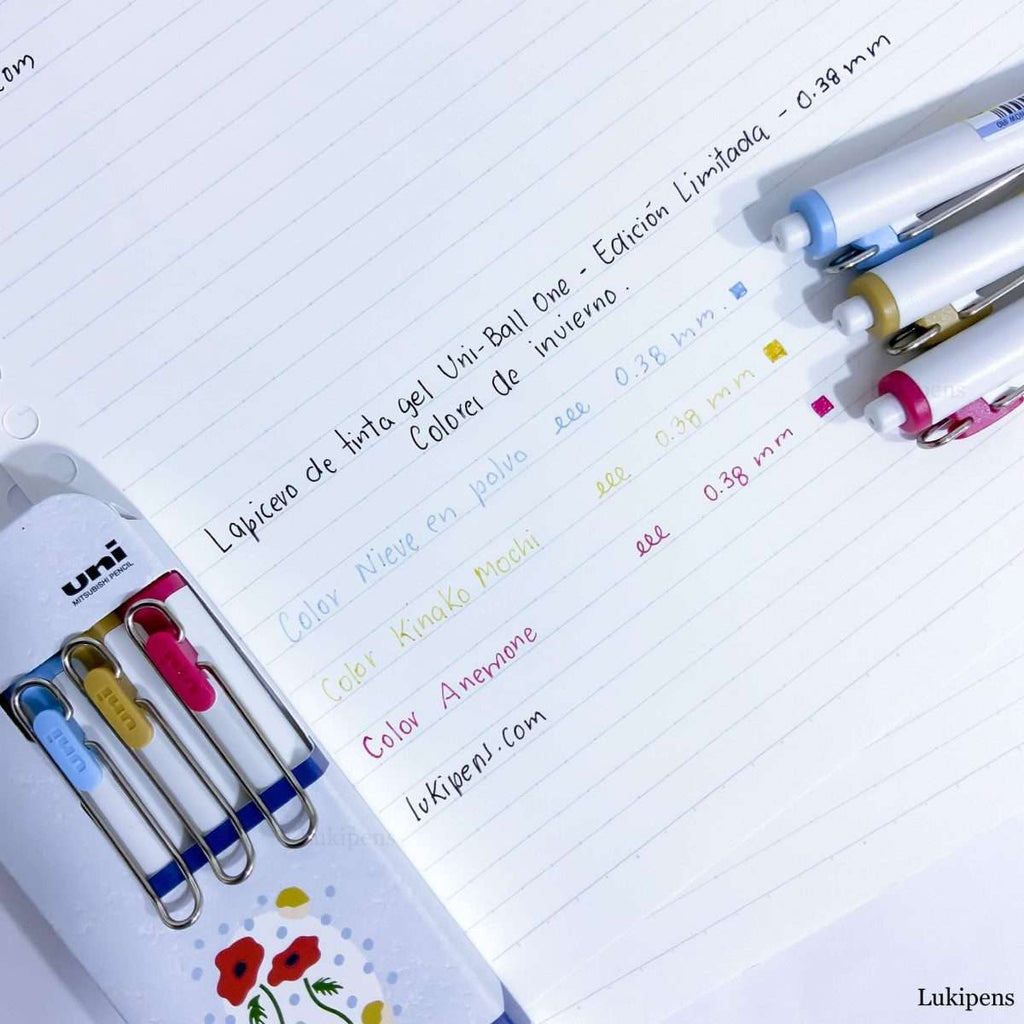 com
Lapicero de tinta gel Uni-Ball One - Edición Limitada - 0.38 mm
Colores de invierno.
Color Nieve en polvo eee 0.38 mm.
Color Kinako Mochi eee 0.38 mm
Color Anemone eee 0.38 mm
lukipens.com
uni
MITSUBISHI PENCIL
uni
uni
uni
Lukipens
Lukipens